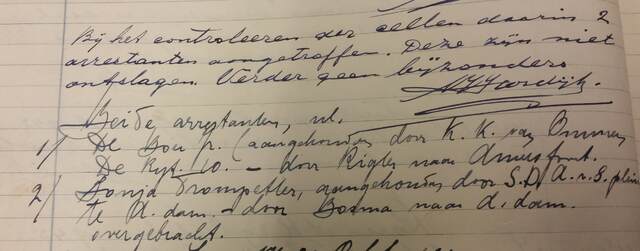 Bij het controleeren der cellen daarin 2
arrestanten aangetroffen. Deze zijn niet
ontslagen. Verder geen bijzonders
Beide arrestanten, nl.
1/ De Boer (aangehouden door K. K. van Ommen
De Rijt. 10. - door Rigter naar Amersfoort.
2/ Sonja Trompetter, aangehouden door S.D. A. v. S. plein
te A.dam. - door Bosma naar A.dam.
overgebracht.